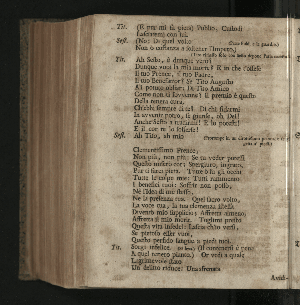 Tit. (E pur mi fa pietà) Publio, Custodi
Lasciatemi con lui.
Sest. (No: Di quel volto
Non ò costanza a sostener l'Impero)
Tit. Ah Sesto, è dunque vero!
Dunque vuoi la mia morte? E in che t'offese
Il tuo Prence, il tuo Padre,
Il tuo Benefattor? Se Tito Augusto
Ai potuto obliar; Di Tito Amico
Come non ti sovvenne? il premio è questo
Della tenera cura,
Ch'ebbe sempre di te? Di chi fidarmi
In avvenir potrò, se giunse, oh Dei!
Anche Sesto a tradirmi? E lo potesti?
E il cor te lo sofferse?
Sest. Ah Tito, ah mio
Clementissimo Prence,
Non più, non più: Se tu veder potessi
Questo misero cor; Spergiuro, ingrato,
Pur ti farei pietà. Tutte ò su gli occhi
Tutte le colpe mie: Tutti rammento
I beneficj tuoi: Soffrir non posso,
Ne l'idea di me stesso,
Ne la presenza tua. Quel sacro volto,
La voce tua, la tua clemenza istessa
Diventò mio supplicio; Affretta almeno,
Affretta il mio morir. Toglimi presto
Questa vita infedel: Lascia ch'io versi,
Se pietoso esser vuoi,
Questo perfido sangue a' piedi tuoi.
Tit. Sorgi infelice. (Il contenersi è pena
A quel tenero pianto.) Or vedi a quale
Lagrimevole stato
Un delitto riduce: Una sfrenata